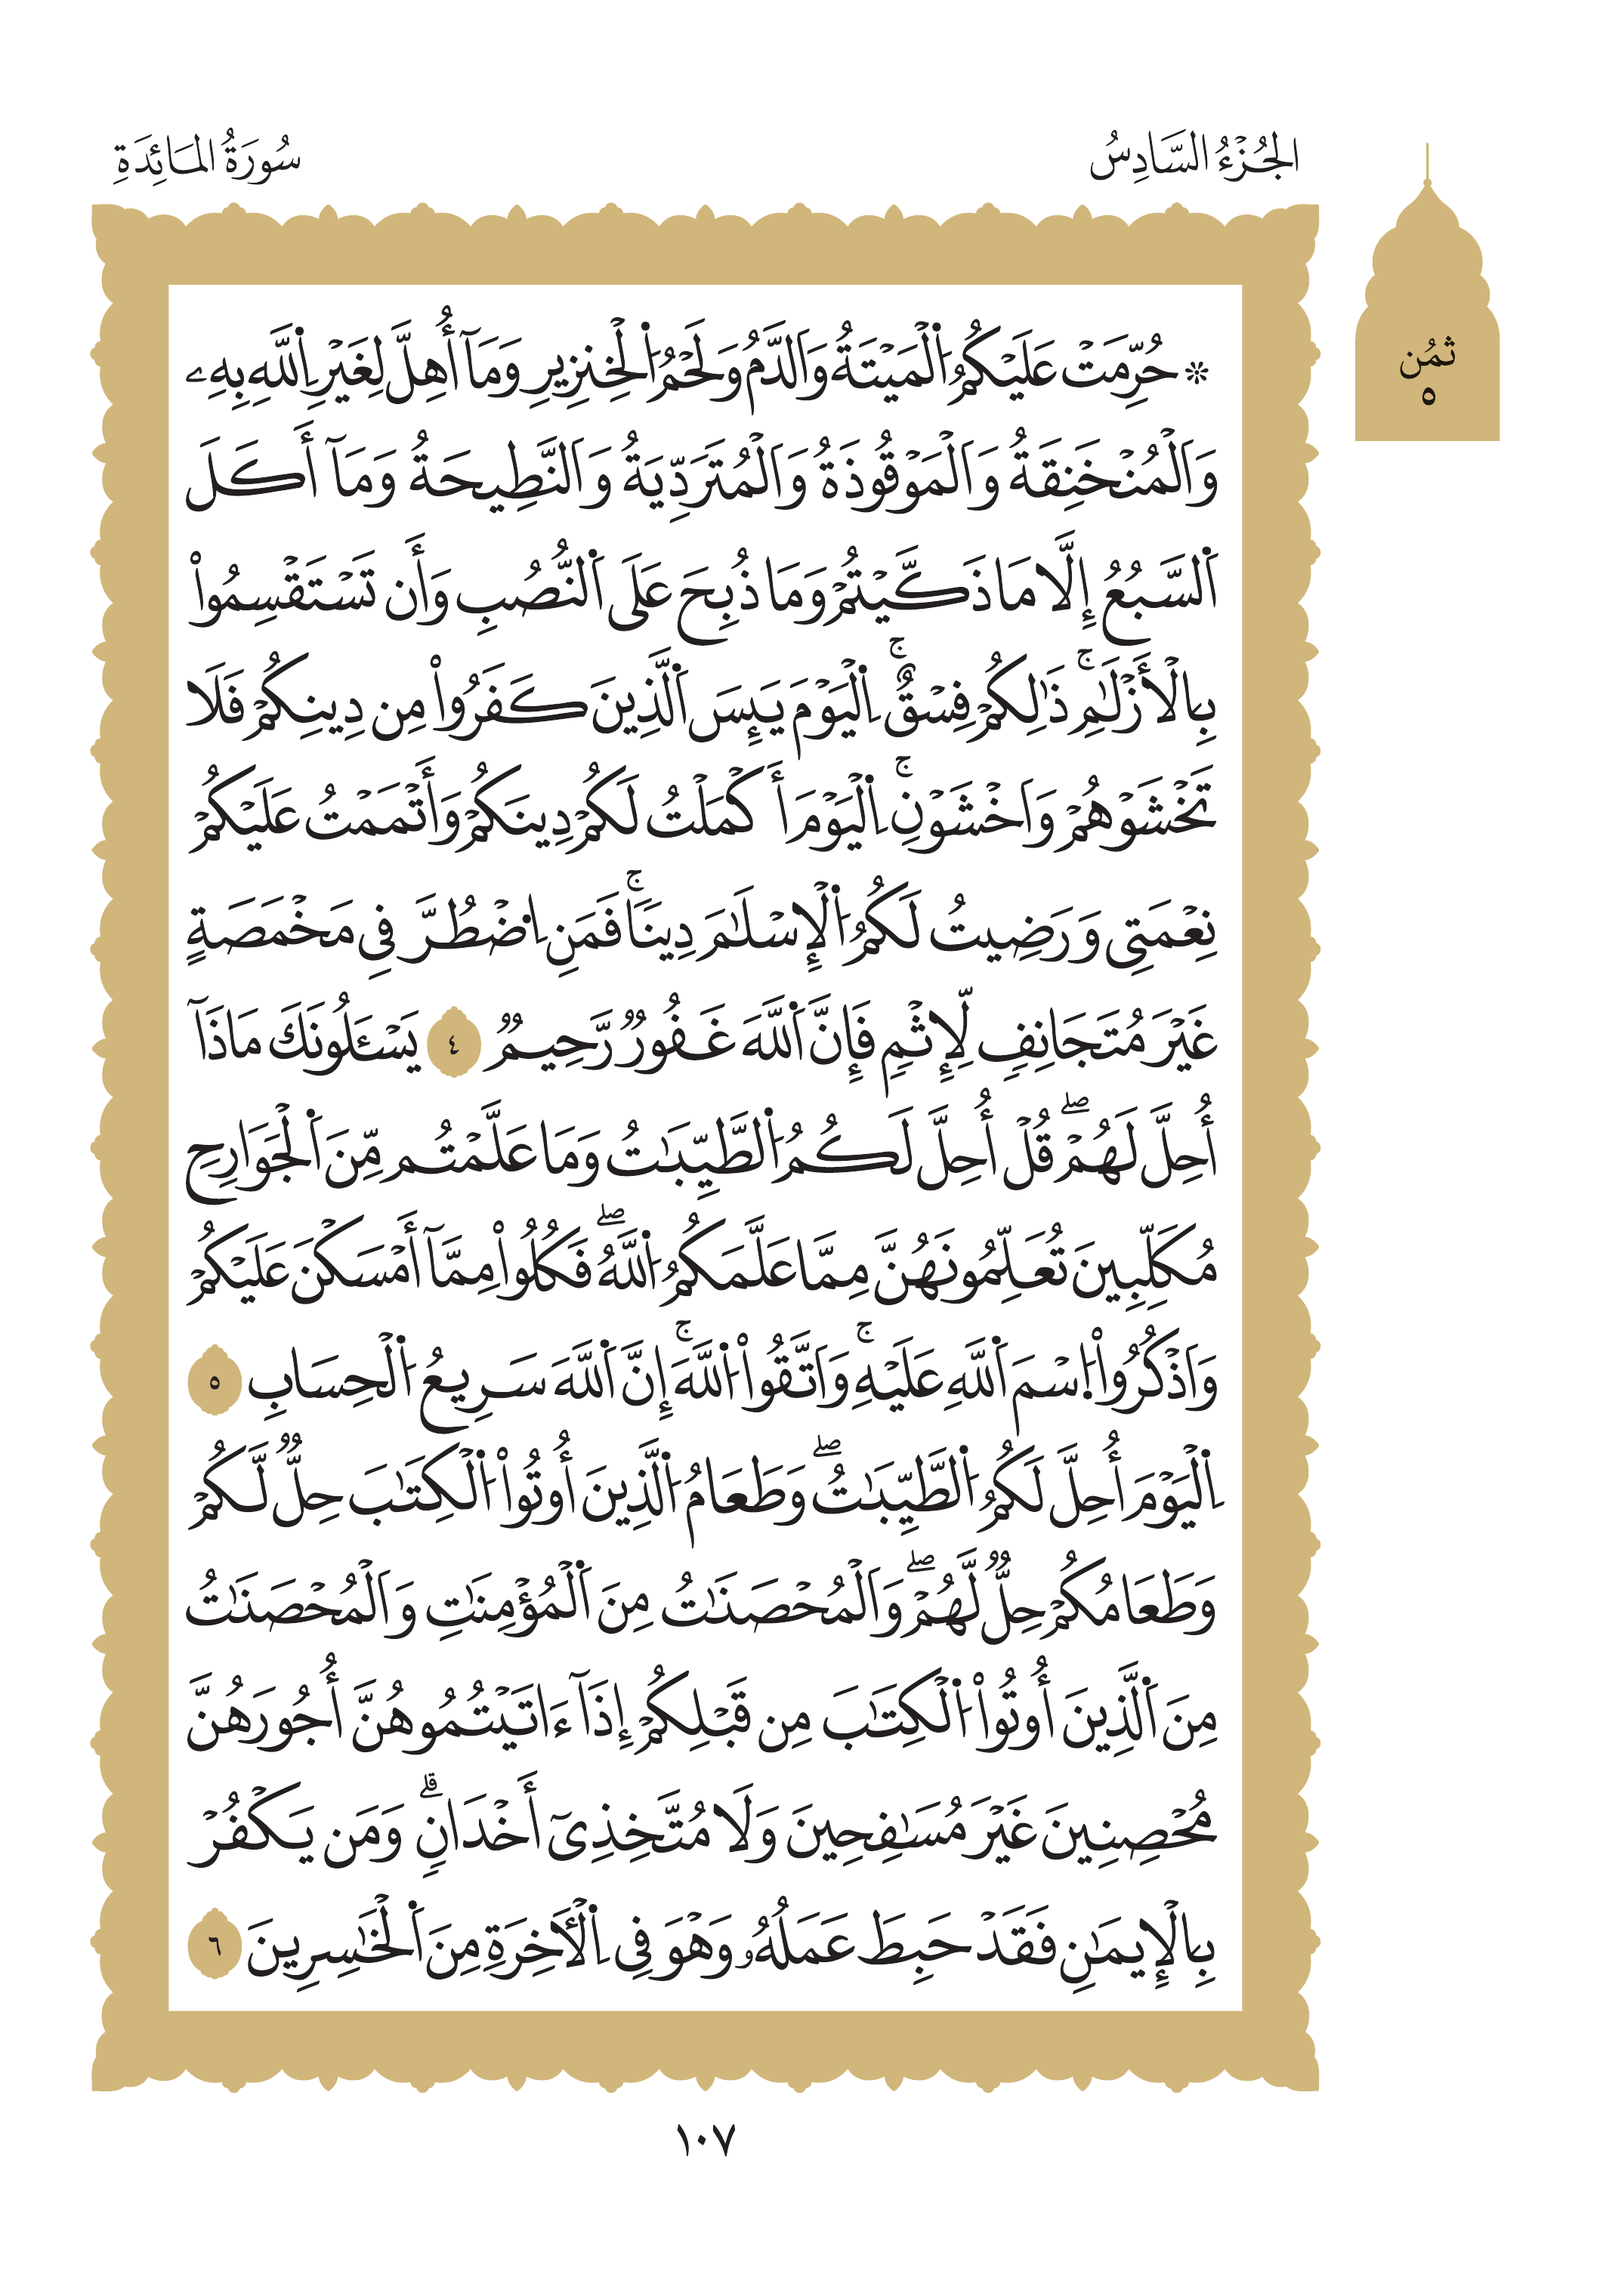 الجُزْءُ السَّادِسُ
سُورَةُ المَائِدَةِ
ثُمُن
٥
۞ حُرِّمَتْ عَلَيْكُمُ اَ۬لْمَيْتَةُ وَالدَّمُ وَلَحْمُ اُ۬لْخِنزِيرِ وَمَآ أُهِلَّ لِغَيْرِ اِ۬للَّهِ بِهِۦ
وَالْمُنْخَنِقَةُ وَالْمَوْقُوذَةُ وَالْمُتَرَدِّيَةُ وَالنَّطِيحَةُ وَمَآ أَكَلَ
اَ۬لسَّبُعُ إِلَّا مَا ذَكَّيْتُمْ وَمَا ذُبِحَ عَلَى اَ۬لنُّصُبِ وَأَن تَسْتَقْسِمُواْ
بِالْأَزْلَٰمِۚ ذَٰلِكُمْ فِسْقٌۚ اِ۬لْيَوْمَ يَئِسَ اَ۬لَّذِينَ كَفَرُواْ مِن دِينِكُمْ فَلَا
تَخْشَوْهُمْ وَاخْشَوْنِۚ اِ۬لْيَوْمَ أَكْمَلْتُ لَكُمْ دِينَكُمْ وَأَتْمَمْتُ عَلَيْكُمْ
نِعْمَتِى وَرَضِيتُ لَكُمُ اُ۬لْإِسْلَٰمَ دِينٗاۚ فَمَنِ اِ۟ضْطُرَّ فِى مَخْمَصَةٍ
غَيْرَ مُتَجَانِفٖ لِّإِثْمٖ فَإِنَّ اَ۬للَّهَ غَفُورٞ رَّحِيمٞ ٤ يَسْـَٔلُونَكَ مَاذَآ
أُحِلَّ لَهُمْۖ قُلْ أُحِلَّ لَكُمُ اُ۬لطَّيِّبَٰتُ وَمَا عَلَّمْتُم مِّنَ اَ۬لْجَوَارِحِ
مُكَلِّبِينَ تُعَلِّمُونَهُنَّ مِمَّا عَلَّمَكُمُ اُ۬للَّهُۖ فَكُلُواْ مِمَّآ أَمْسَكْنَ عَلَيْكُمْ
وَاذْكُرُواْ اُ۪سْمَ اَ۬للَّهِ عَلَيْهِۚ وَاتَّقُواْ اُ۬للَّهَۚ إِنَّ اَ۬للَّهَ سَرِيعُ اُ۬لْحِسَابِ ٥
اِ۬لْيَوْمَ أُحِلَّ لَكُمُ اُ۬لطَّيِّبَٰتُۖ وَطَعَامُ اُ۬لَّذِينَ أُوتُواْ اُ۬لْكِتَٰبَ حِلّٞ لَّكُمْ
وَطَعَامُكُمْ حِلّٞ لَّهُمْۖ وَالْمُحْصَنَٰتُ مِنَ اَ۬لْمُؤْمِنَٰتِ وَالْمُحْصَنَٰتُ
مِنَ اَ۬لَّذِينَ أُوتُواْ اُ۬لْكِتَٰبَ مِن قَبْلِكُمْ إِذَآ ءَاتَيْتُمُوهُنَّ أُجُورَهُنَّ
مُحْصِنِينَ غَيْرَ مُسَٰفِحِينَ وَلَا مُتَّخِذِىٓ أَخْدَانٖۗ وَمَن يَكْفُرْ
بِالْإِيمَٰنِ فَقَدْ حَبِطَ عَمَلُهُۥ وَهْوَ فِى اِ۬لْأٓخِرَةِ مِنَ اَ۬لْخَٰسِرِينَ ٦
١٠٧